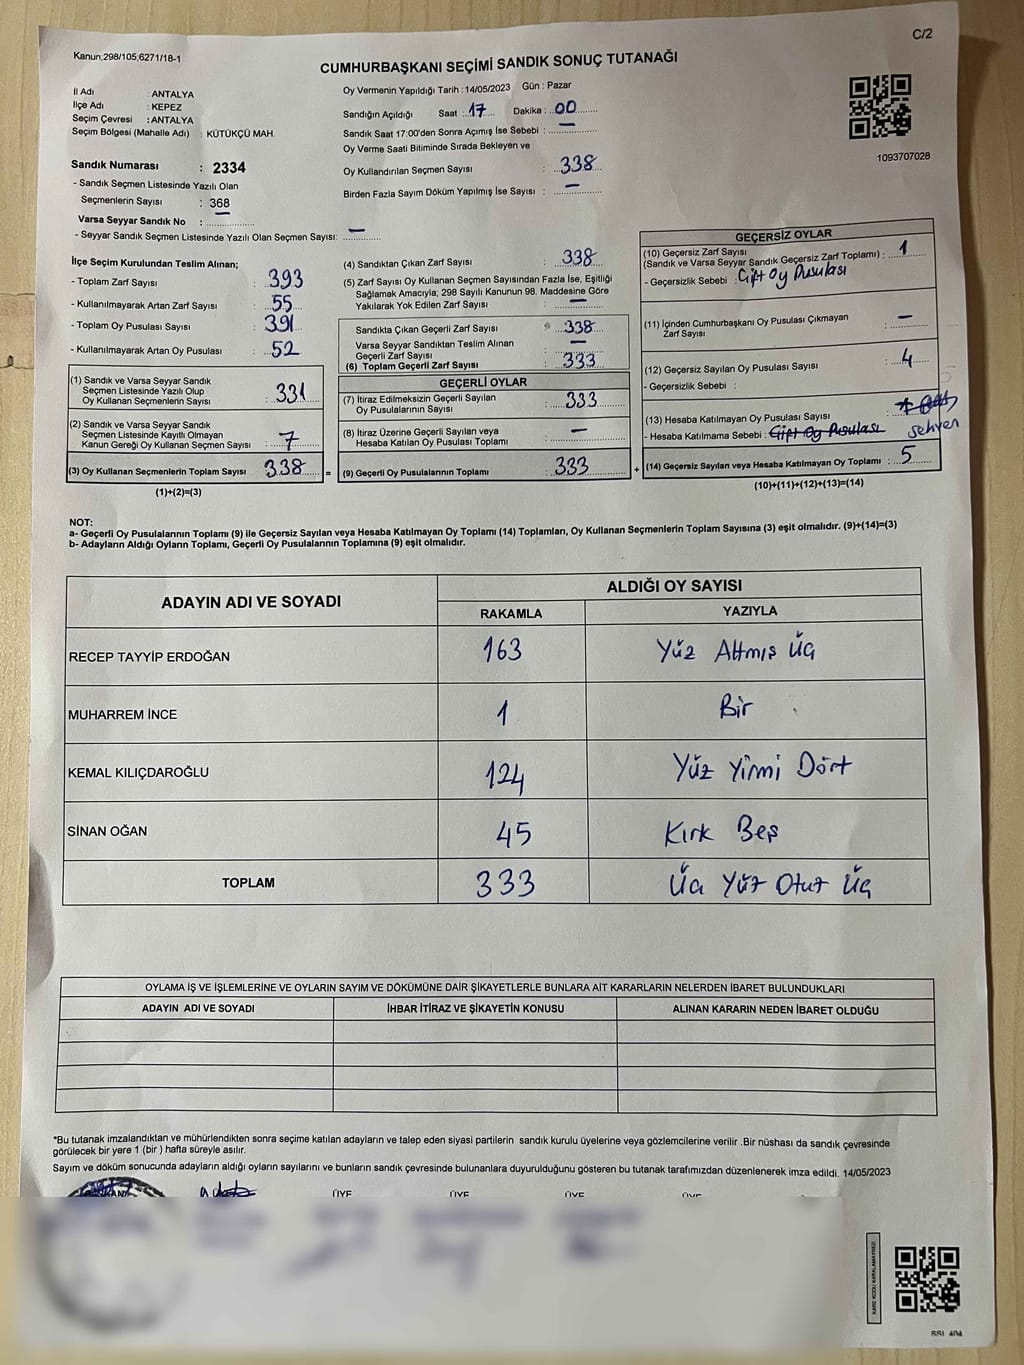 C/2
Kanun;298/105;6271/18-1
CUMHURBAŞKANI SEÇİMİ SANDIK SONUÇ TUTANAĞI
İl Adı : ANTALYA
İlçe Adı : KEPEZ
Seçim Çevresi : ANTALYA
Seçim Bölgesi (Mahalle Adı) : KÜTÜKÇÜ MAH.
Sandık Numarası : 2334
- Sandık Seçmen Listesinde Yazılı Olan
Seçmenlerin Sayısı : 368
Varsa Seyyar Sandık No : —
- Seyyar Sandık Seçmen Listesinde Yazılı Olan Seçmen Sayısı: —
Oy Vermenin Yapıldığı Tarih : 14/05/2023 Gün : Pazar
Sandığın Açıldığı Saat : 17 Dakika : 00
Sandık Saat 17:00'den Sonra Açımış İse Sebebi : —
Oy Verme Saati Bitiminde Sırada Bekleyen ve
Oy Kullandırılan Seçmen Sayısı : 338
Birden Fazla Sayım Döküm Yapılmış İse Sayısı : —
1093707028
İlçe Seçim Kurulundan Teslim Alınan;
- Toplam Zarf Sayısı : 393
- Kullanılmayarak Artan Zarf Sayısı : 55
- Toplam Oy Pusulası Sayısı : 391
- Kullanılmayarak Artan Oy Pusulası : 52
(1) Sandık ve Varsa Seyyar Sandık
Seçmen Listesinde Yazılı Olup
Oy Kullanan Seçmenlerin Sayısı : 331
(2) Sandık ve Varsa Seyyar Sandık
Seçmen Listesinde Kayıtlı Olmayan
Kanun Gereği Oy Kullanan Seçmen Sayısı : 7
(3) Oy Kullanan Seçmenlerin Toplam Sayısı : 338 =
(1)+(2)=(3)
(4) Sandıktan Çıkan Zarf Sayısı : 338
(5) Zarf Sayısı Oy Kullanan Seçmen Sayısından Fazla İse, Eşitliği
Sağlamak Amacıyla, 298 Sayılı Kanunun 98. Maddesine Göre
Yakılarak Yok Edilen Zarf Sayısı : —
Sandıkta Çıkan Geçerli Zarf Sayısı : 338
Varsa Seyyar Sandıktan Teslim Alınan
Geçerli Zarf Sayısı : —
(6) Toplam Geçerli Zarf Sayısı : 333
GEÇERLİ OYLAR
(7) İtiraz Edilmeksizin Geçerli Sayılan
Oy Pusulalarının Sayısı : 333
(8) İtiraz Üzerine Geçerli Sayılan veya
Hesaba Katılan Oy Pusulası Toplamı : —
(9) Geçerli Oy Pusulalarının Toplamı : 333 +
GEÇERSİZ OYLAR
(10) Geçersiz Zarf Sayısı
(Sandık ve Varsa Seyyar Sandık Geçersiz Zarf Toplamı) : 1
- Geçersizlik Sebebi : Çift Oy Pusulası
(11) İçinden Cumhurbaşkanı Oy Pusulası Çıkmayan
Zarf Sayısı : —
(12) Geçersiz Sayılan Oy Pusulası Sayısı : 4
- Geçersizlik Sebebi :
(13) Hesaba Katılmayan Oy Pusulası Sayısı :
- Hesaba Katılmama Sebebi : Çift Oy Pusulası sehven
(14) Geçersiz Sayılan veya Hesaba Katılmayan Oy Toplamı : 5
(10)+(11)+(12)+(13)=(14)
NOT:
a- Geçerli Oy Pusulalarının Toplamı (9) ile Geçersiz Sayılan veya Hesaba Katılmayan Oy Toplamı (14) Toplamları, Oy Kullanan Seçmenlerin Toplam Sayısına (3) eşit olmalıdır. (9)+(14)=(3)
b- Adayların Aldığı Oyların Toplamı, Geçerli Oy Pusulalarının Toplamına (9) eşit olmalıdır.
ADAYIN ADI VE SOYADI
ALDIĞI OY SAYISI
RAKAMLA YAZIYLA
RECEP TAYYİP ERDOĞAN 163 Yüz Altmış Üç
MUHARREM İNCE 1 Bir
KEMAL KILIÇDAROĞLU 124 Yüz Yirmi Dört
SİNAN OĞAN 45 Kırk Beş
TOPLAM 333 Üç Yüz Otuz Üç
OYLAMA İŞ VE İŞLEMLERİNE VE OYLARIN SAYIM VE DÖKÜMÜNE DAİR ŞİKAYETLERLE BUNLARA AİT KARARLARIN NELERDEN İBARET BULUNDUKLARI
ADAYIN ADI VE SOYADI İHBAR İTİRAZ VE ŞİKAYETİN KONUSU ALINAN KARARIN NEDEN İBARET OLDUĞU
*Bu tutanak imzalandıktan ve mühürlendikten sonra seçime katılan adayların ve talep eden siyasi partilerin sandık kurulu üyelerine veya gözlemcilerine verilir .Bir nüshası da sandık çevresinde
görülecek bir yere 1 (bir ) hafta süreyle asılır.
Sayım ve döküm sonucunda adayların aldığı oyların sayılarını ve bunların sandık çevresinde bulunanlara duyurulduğunu gösteren bu tutanak tarafımızdan düzenlenerek imza edildi. 14/05/2023
ÜYE ÜYE ÜYE ÜYE